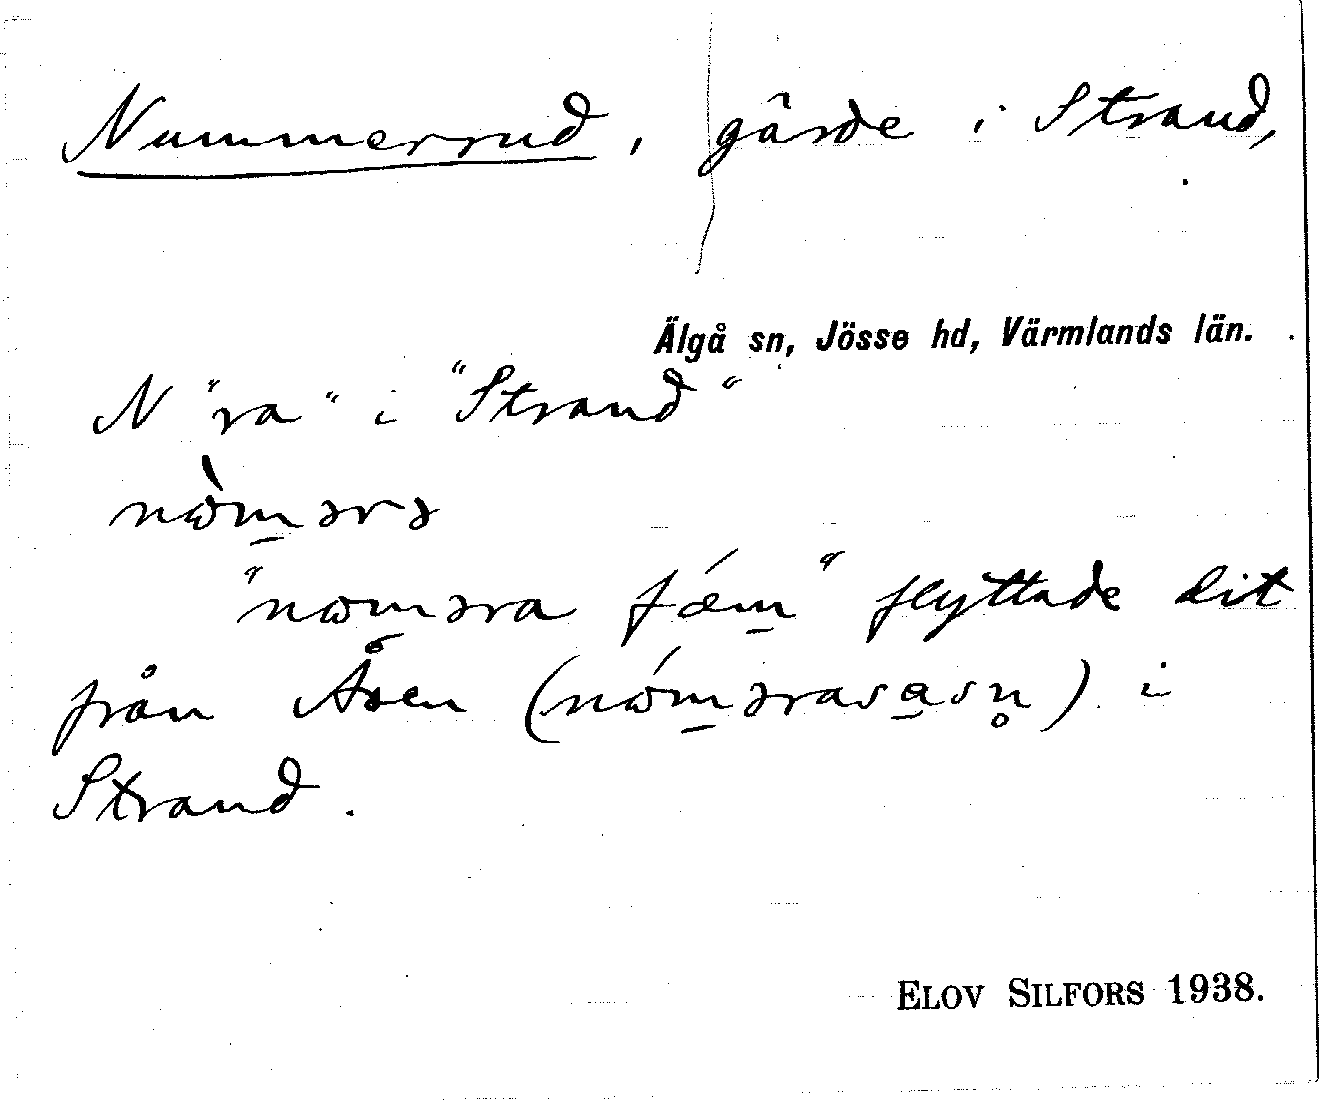 Nummerrud, gärde i Strand,
Älgå sn, Jösse hd, Värmlands län.
N "ra" i "Strand"
nὼm̠ərə
"nωm̠əra fǽm̠" flyttade dit
från Åsen (nώm̠ərasa̠sn̥) i
Strand.
ELOV SILFORS 1938.